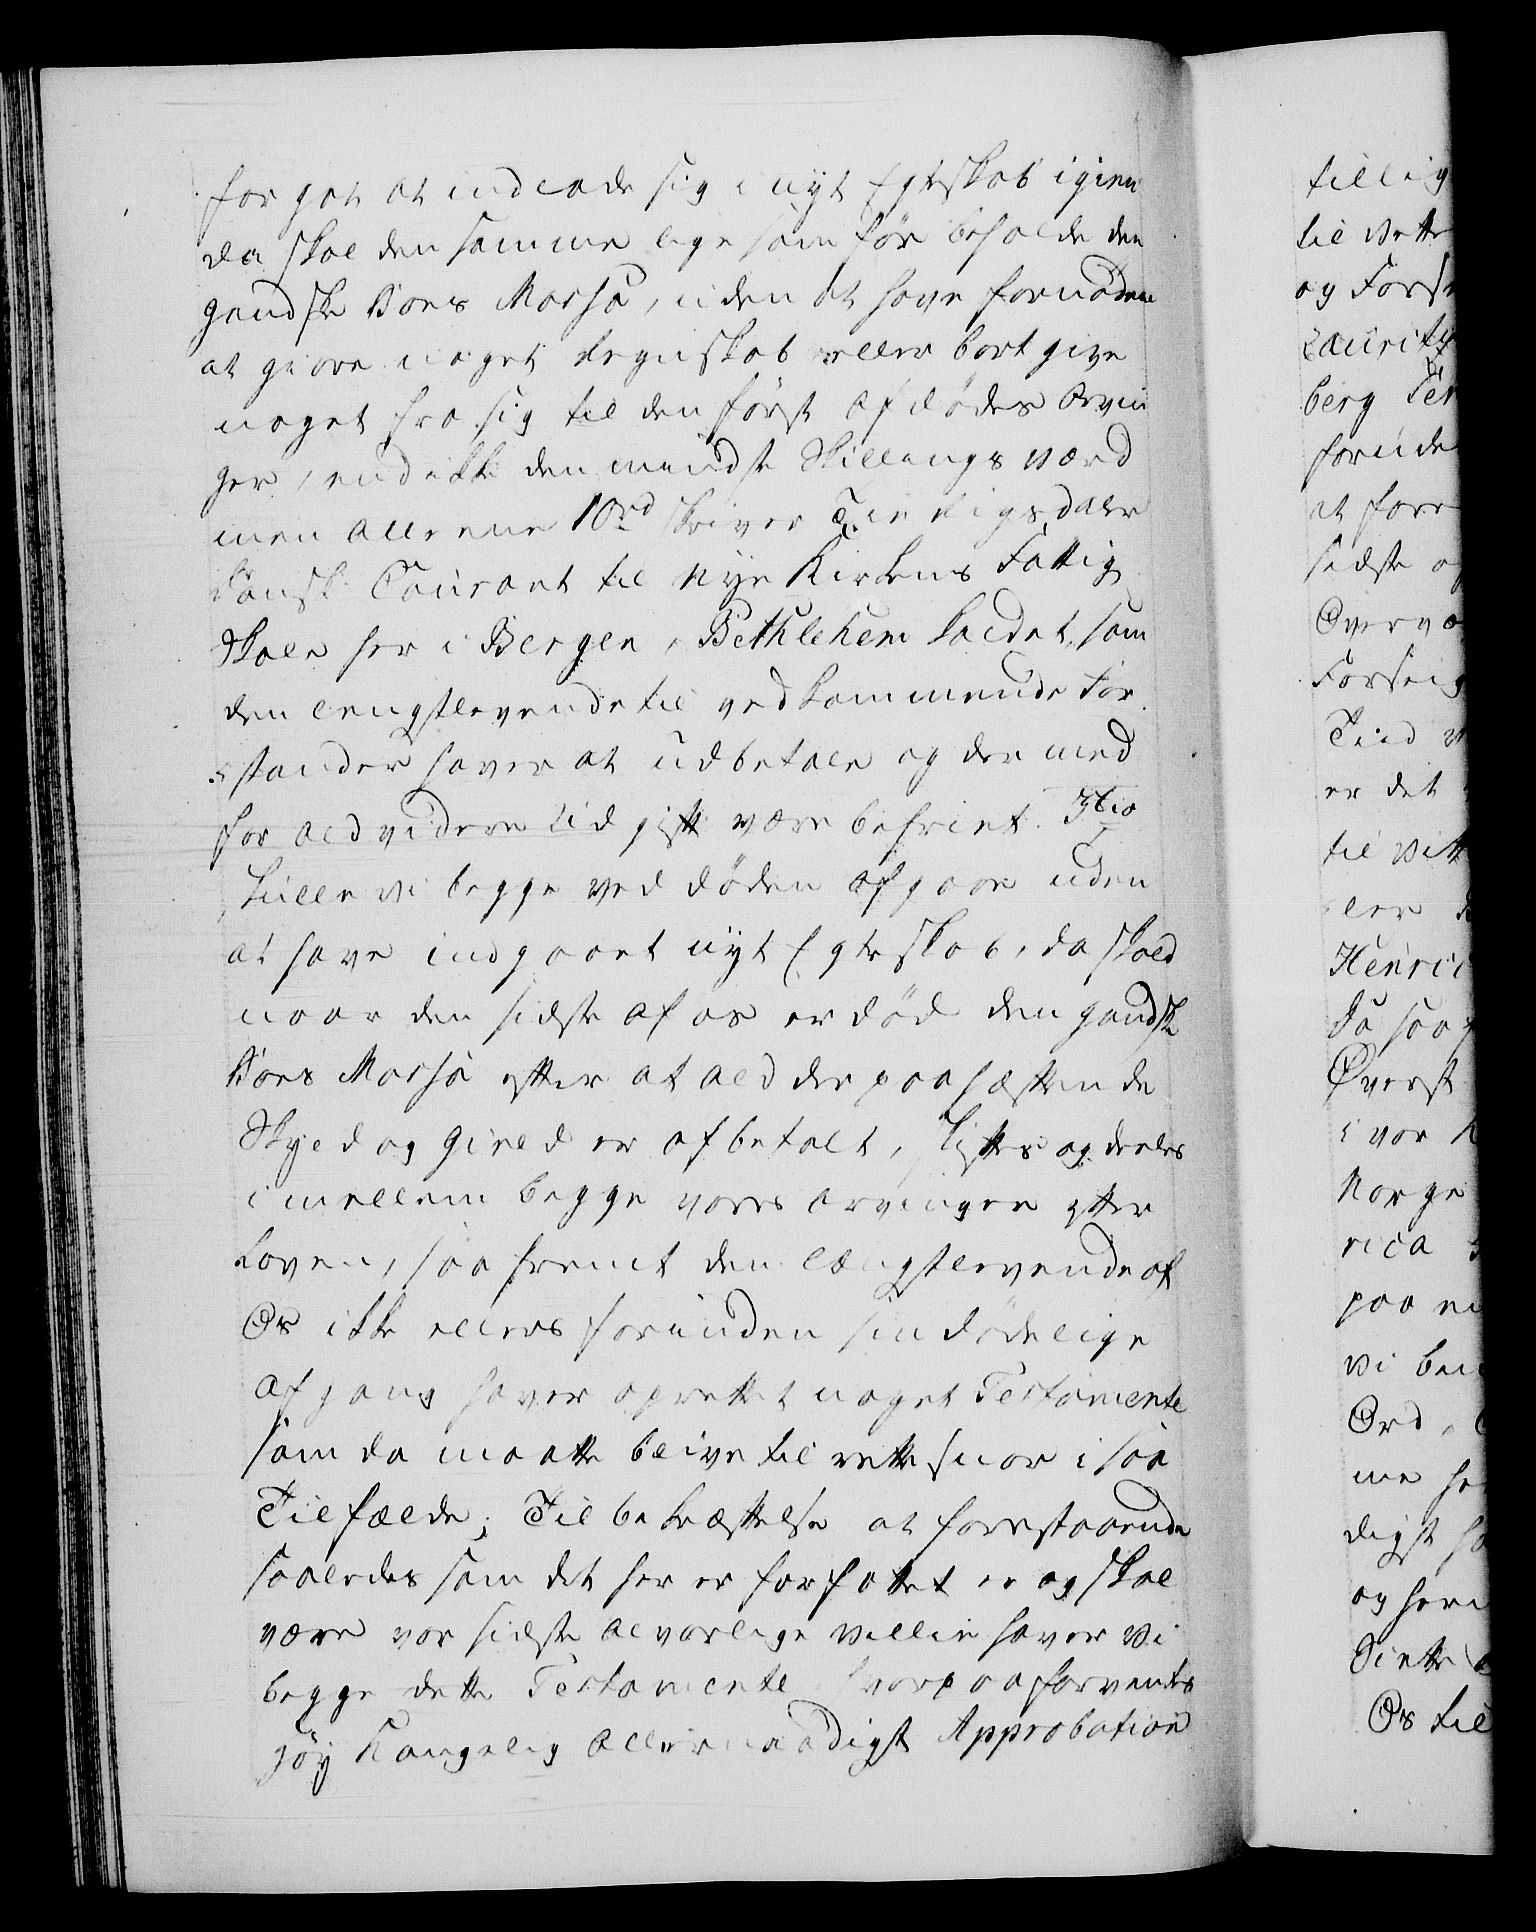 for got at indlade sig i nyt Egteskab igien
da skal den samme lige som før beholde den
gandske Boes Massa, uden at have fornøden
at giøre noget Regnskab eller bort give
noget fra sig til den først afdødes Arvin
ger, end ikke den mindste Skillings værd
men allene 10rd skriver Tie Rigsdaler
dansk Courant til Nye Kirkens Fattig
Skole her i Bergen, Bethlehem kaldet, som
den lengstlevende til vedkommende For
stander haver at udbetale og der med
for ald videre være befriet. 3tio
Skulle vi begge ved døden afgaae uden
at have indgaaet nyt Egteskab, da skal
naar den sidste af os er død den gandske
Boes Massa efter at ald der paa hæftende
Skyld og Gield er afbetalt, skiftes og deeles
imellem begge vores Arvinger efter
Loven, saa fremt den længstlevende af
Os ikke ellers forinden sin dødelige
afgang haver oprettet noget Testamente
som da maatte blive til rettesnor i saa
Tilfælde; Til bekræftelse at forestaaende
saaledes som det her er forfattet er og skal
være vor sidste alvorlige Villie haver Vi
begge dette Testamente hvorpaa forventes
høy Kongelig allernaadigst Approbation

tillig
til Vette
og Forse
Lauritz
berg Ter
foruden
at fore
sidste og
Overvæ
Forseig
Tiid
er det
til Vitt
ler
Henric
da saa
Øverst
i vor
Norge
rica
paa
vi
Ord,
me he
digst
og here
Dette
Os til